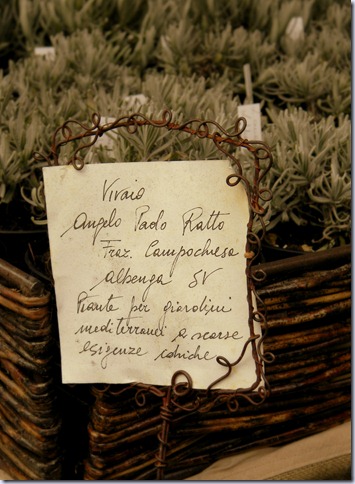 Vivaio
Angelo Paolo Ratto
Fraz. Campochiesa
Albenga SV
Piante per giardini
mediterranei a scarse
esigenze idriche